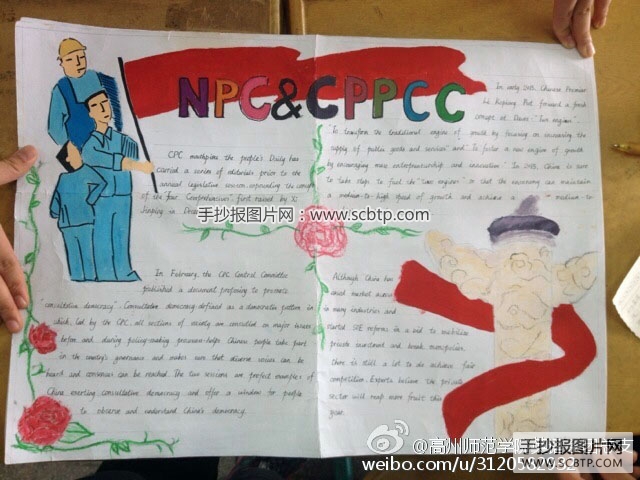 NPC&CPPCC
CPC mouthpiece the people's Daily has
carried a series of editorials prior to the
annual legislative session, expounding the concept
of the "Four Comprehensives", first raised by Xi
Jinping in Dece
In early 2015, Chinese Premier
Li Keqiang Put forward a fresh
concept of Dual "Twin engines":
"To transform the traditional engine of growth by focusing on increasing the
supply of public goods and services" and "To foster a new engine of growth
by encouraging mass entrepreneurship and innovation." In 2015, China is sure
to take steps to fuel the "twin engines" so that the economy can maintain
medium-to-high speed of growth and achieve a medium-to-
手抄报图片网：www.scbtp.com
In February, the CPC Central Committee
published a document promising to promote
consultative democracy". Consultative democracy defined as a democratic pattern in
which, led by the CPC, all sections of society are consulted on major issues
before and during policy-making processes helps Chinese people take part
in the country's governance and makes sure that diverse voices can be
heard and consensus can be reached. The two sessions are perfect examples of
China exerting consultative democracy and offer a window for people
to observe and understand China's democracy.
Although China has
eased market access
in many industries and
started SOE reforms in a bid to mobilize
private investment and break monopolies.
there is still a lot to do achieve fair
competition. Experts believe the private
sector will reap more fruit this
year.
@高州师范学
支
weibo.com/u/3120582
手抄报图片网
WWW.SCBTP.COM